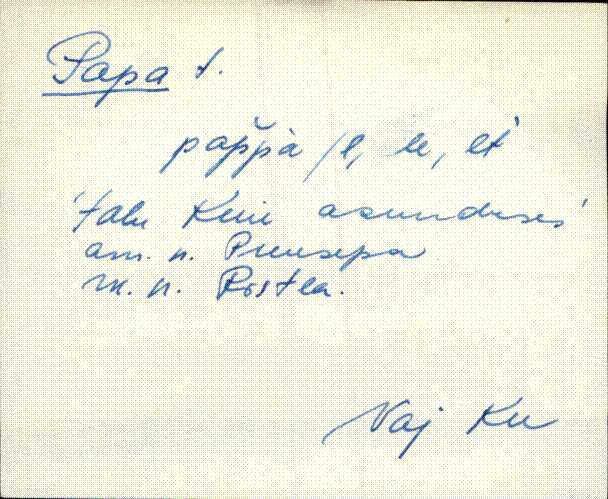 Papa t.
pap̆pa /l, le, lt
'talu Kuu asunduses'
am. n. Puusepa
m. n. Rostla.
Vaj Ku